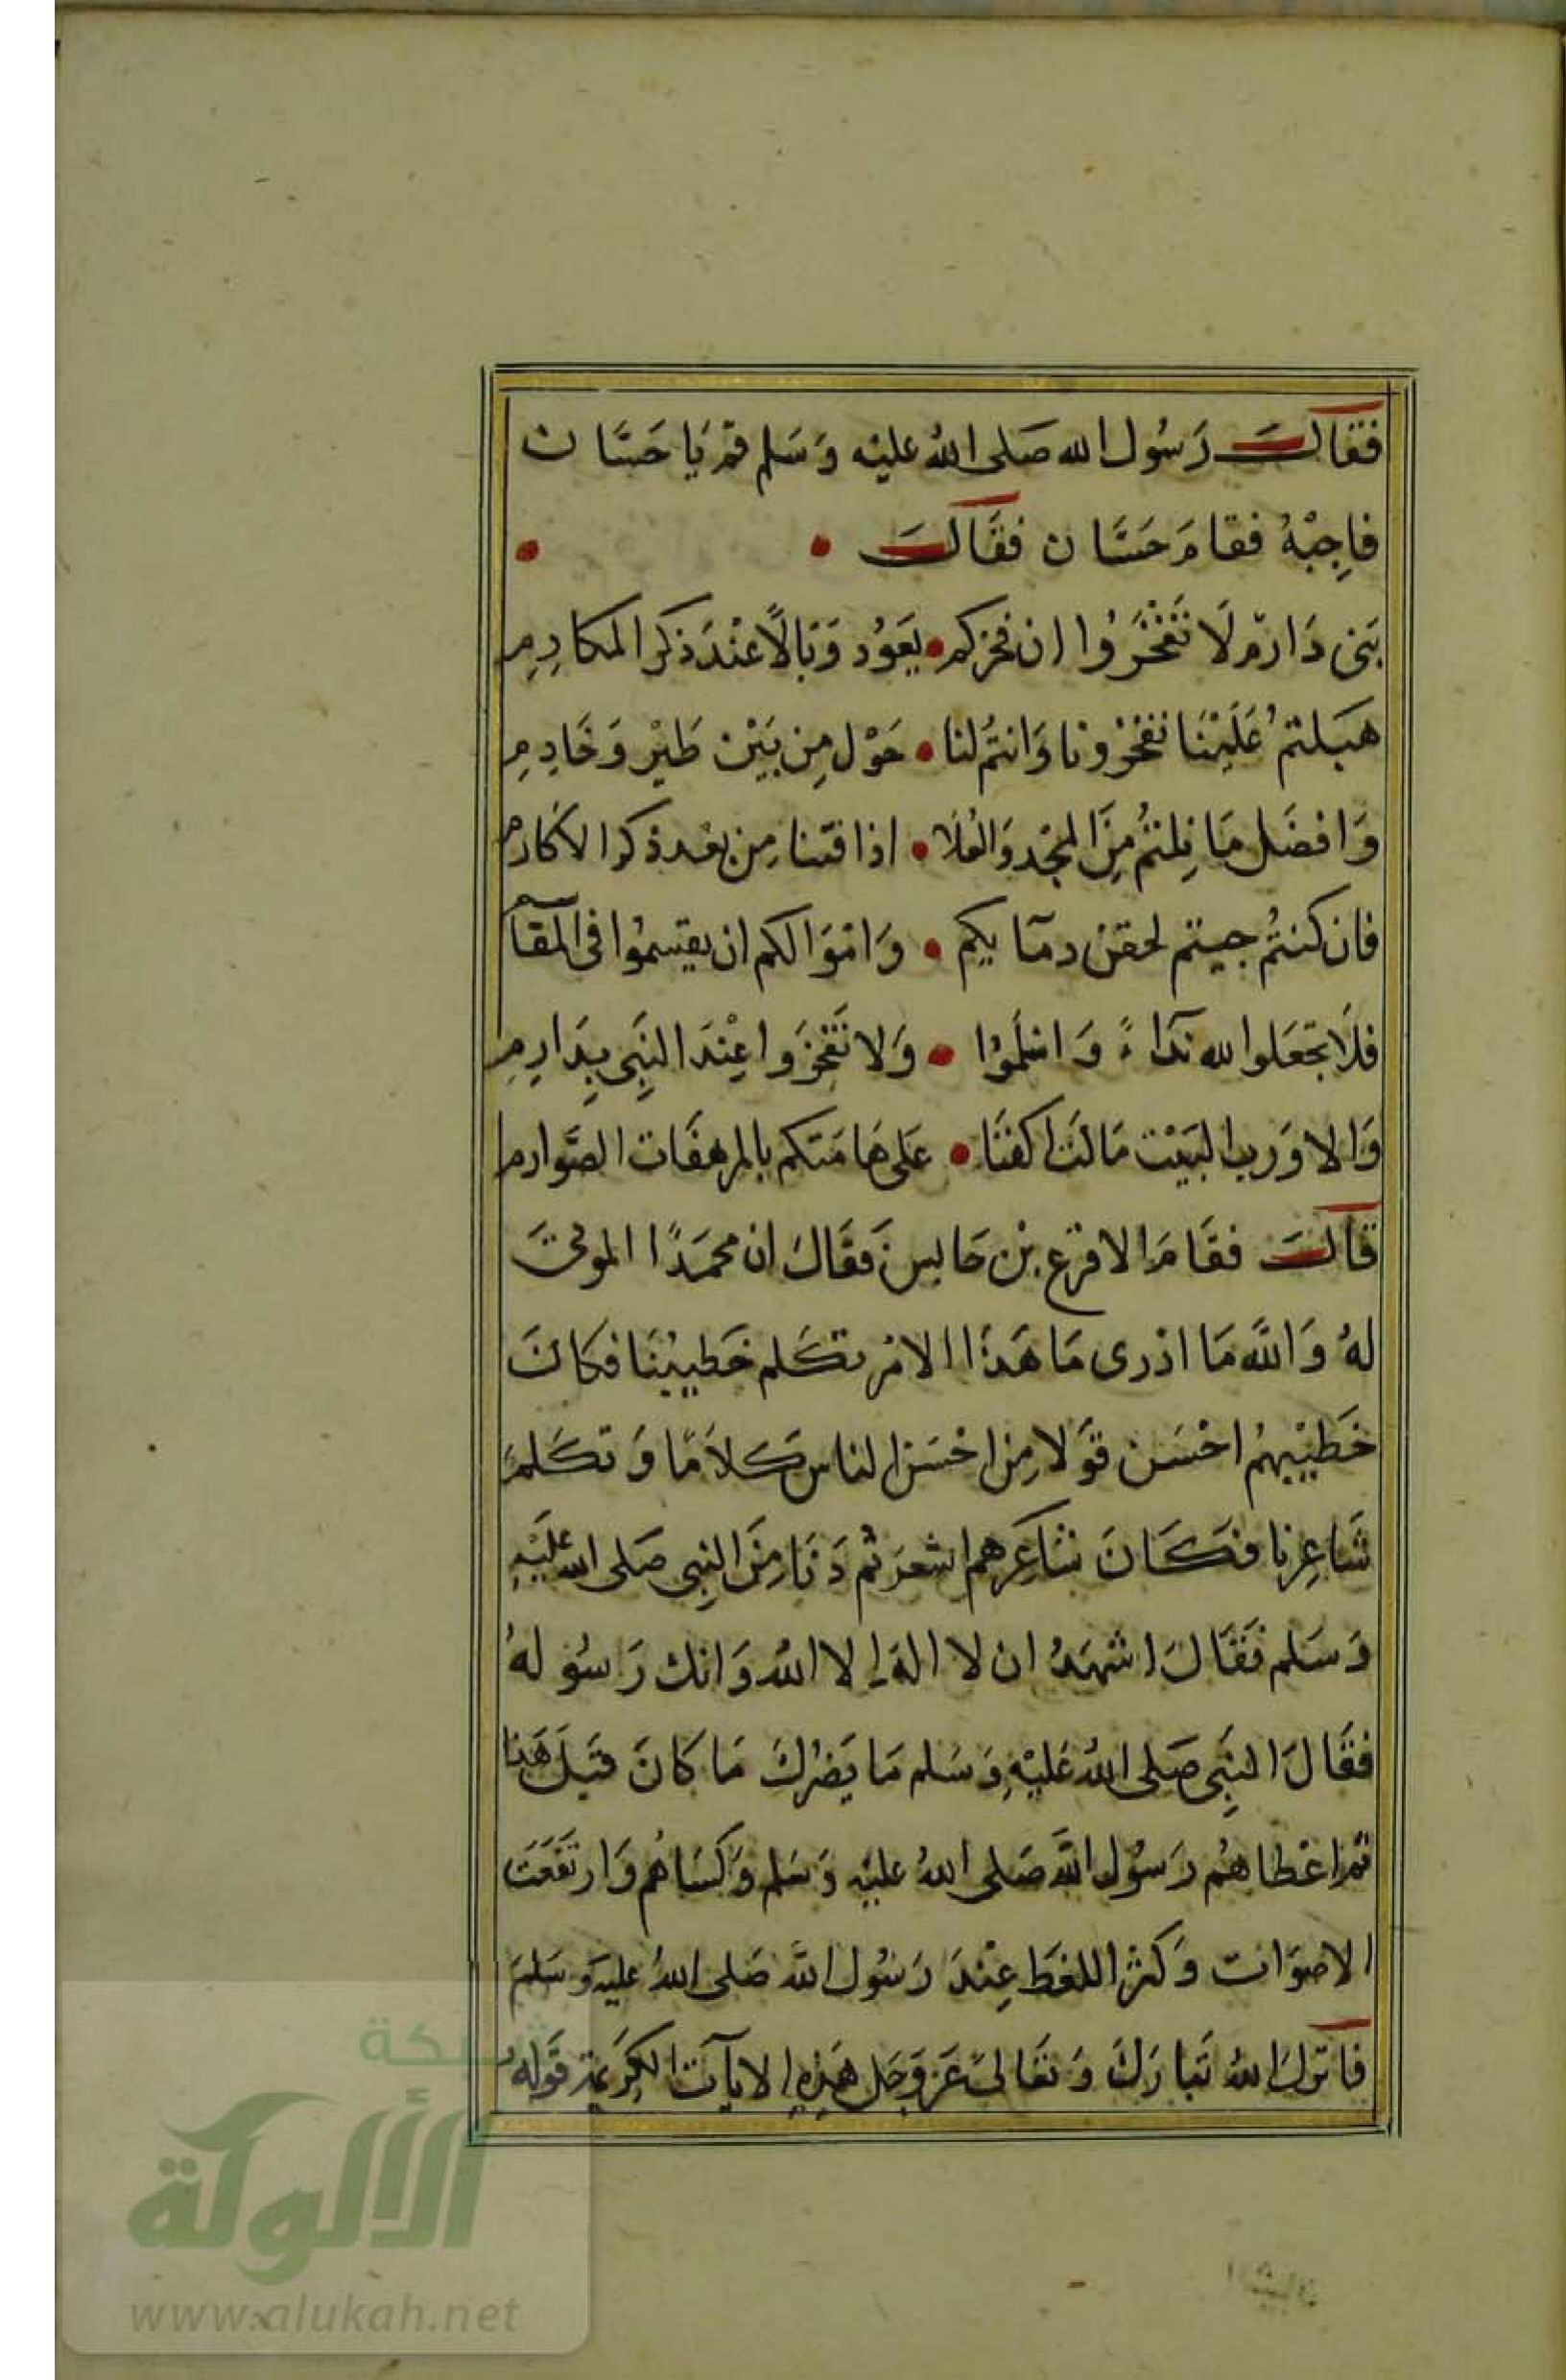 فقالَ رَسُول الله صَلى اللهُ عليْه وَسَلم قم يَا حَسَّان
فاجِبْهُ فقامَ حَسَّان فقَالَ
بَنى دَارم لَا تَفْخَرُوا ان فخركم يَعوُد وَبَالًا عْندَ ذكر المكارمِ
هَبَلتمُ عَليْنَا تفخرونا وَانتُم لنا خَوْل مِن بَيْن طيْر وَخَادمِ
وَافضَل مَا نِلتُم مِنَ المجْد وَالعُلَا اذا قتنا مِن بعْد ذكر الاكارم
فان كنتُم جيتم لحقن دمآيكم وَامْوَالكم ان يقسموُا فى المقآسم
فلَا تجعَلوا لله ندّاءً وَاسْلموُا وَلا تَفْخرَوا عِنْدَ النبِى بِدَارِمِ
وَالا وَرب البَيْت مَالت اكفنَا عَلى هَامَتكم بالمرهفَات الصَّوارم
قالَ فقَامَ الاقرع بْن حَابس فَقَالَ ان محمَدًا الموتىَ
لهُ وَاللَّه مَا ادْرى مَا هَذَا الامْر تكَلم خَطيبُنَا فكانَ
خَطيْبهمُ احْسَن قوَلا مِن احْسَن الناس كَلاَمًا وَتكَلمَ
شَاعِرنا فكَانَ شاعِرَهم اشعَر ثم دَنَا مِنَ النبِى صَلى الله عَليْهِ
وَسَلم فقَالَ اشهَدُ ان لا الهَ الا اللهُ وَانك رَسُولهُ
فقَالَ النبِى صَلى اللهُ عَليْهِ وَسَلم مَا يَضرُكَ مَا كانَ قبَلَ هَذا
ثم اعْطاهُم رَسُول اللَّه صَلى اللهُ عليْه وَسَلم وَكسَاهُم وَارتفَعَت
الاصوَات وَكثر اللغَط عِنْدَ رَسُول اللَّه صَلى اللهُ عليْه وَسَلمَ
فانزلَ اللهُ تَبارَكَ وَتعَالىَ عَز وَجَل هَذِهِ الايآت الكرَيمة قَوله
شبكة
الألوكة
www.alukah.net